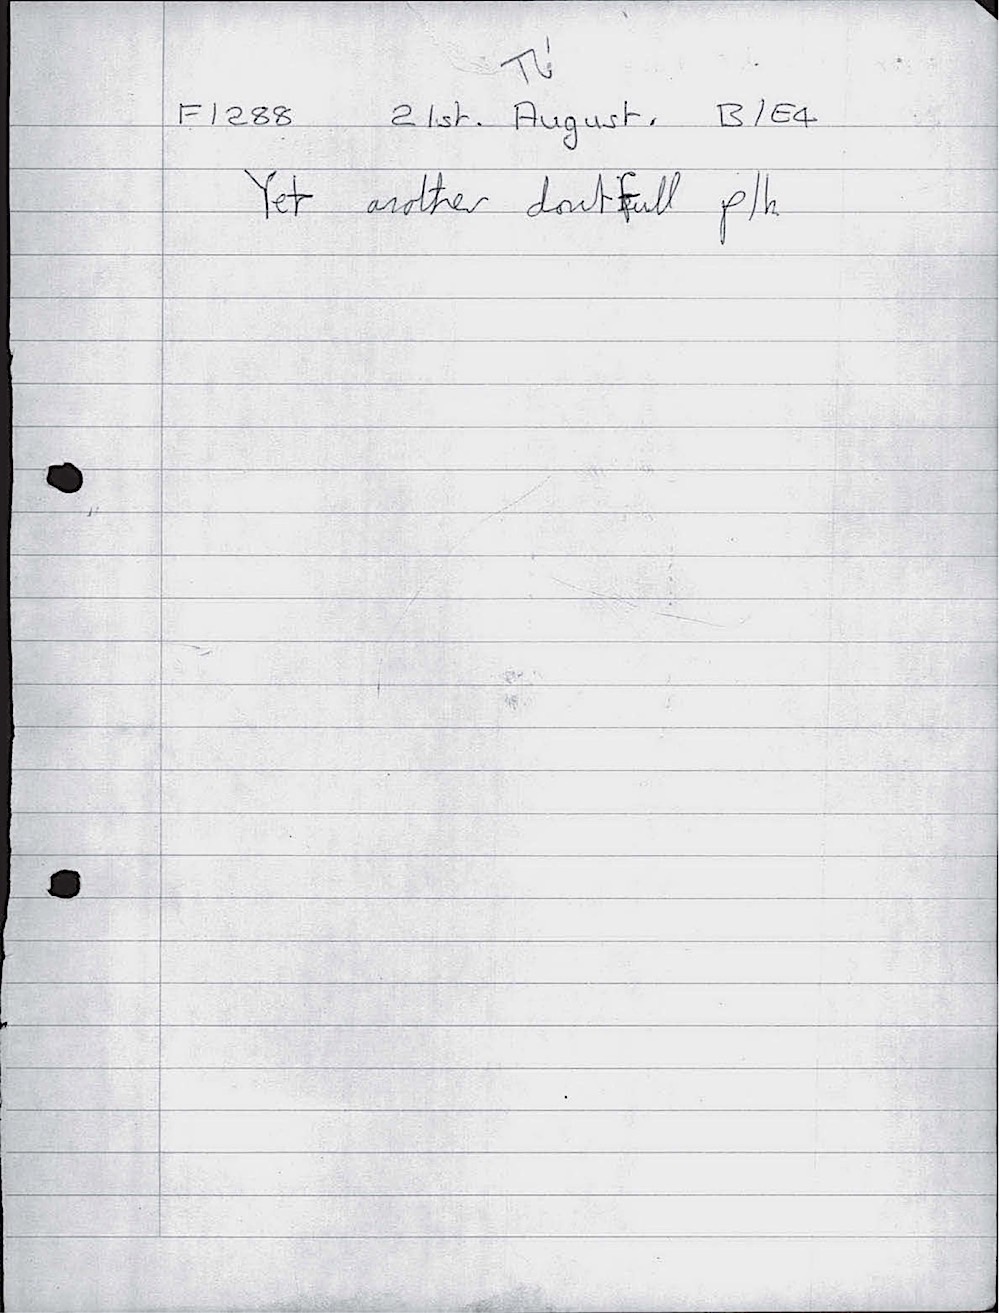 F1288 21st. August. B/E4
Yet another doutfull p/h